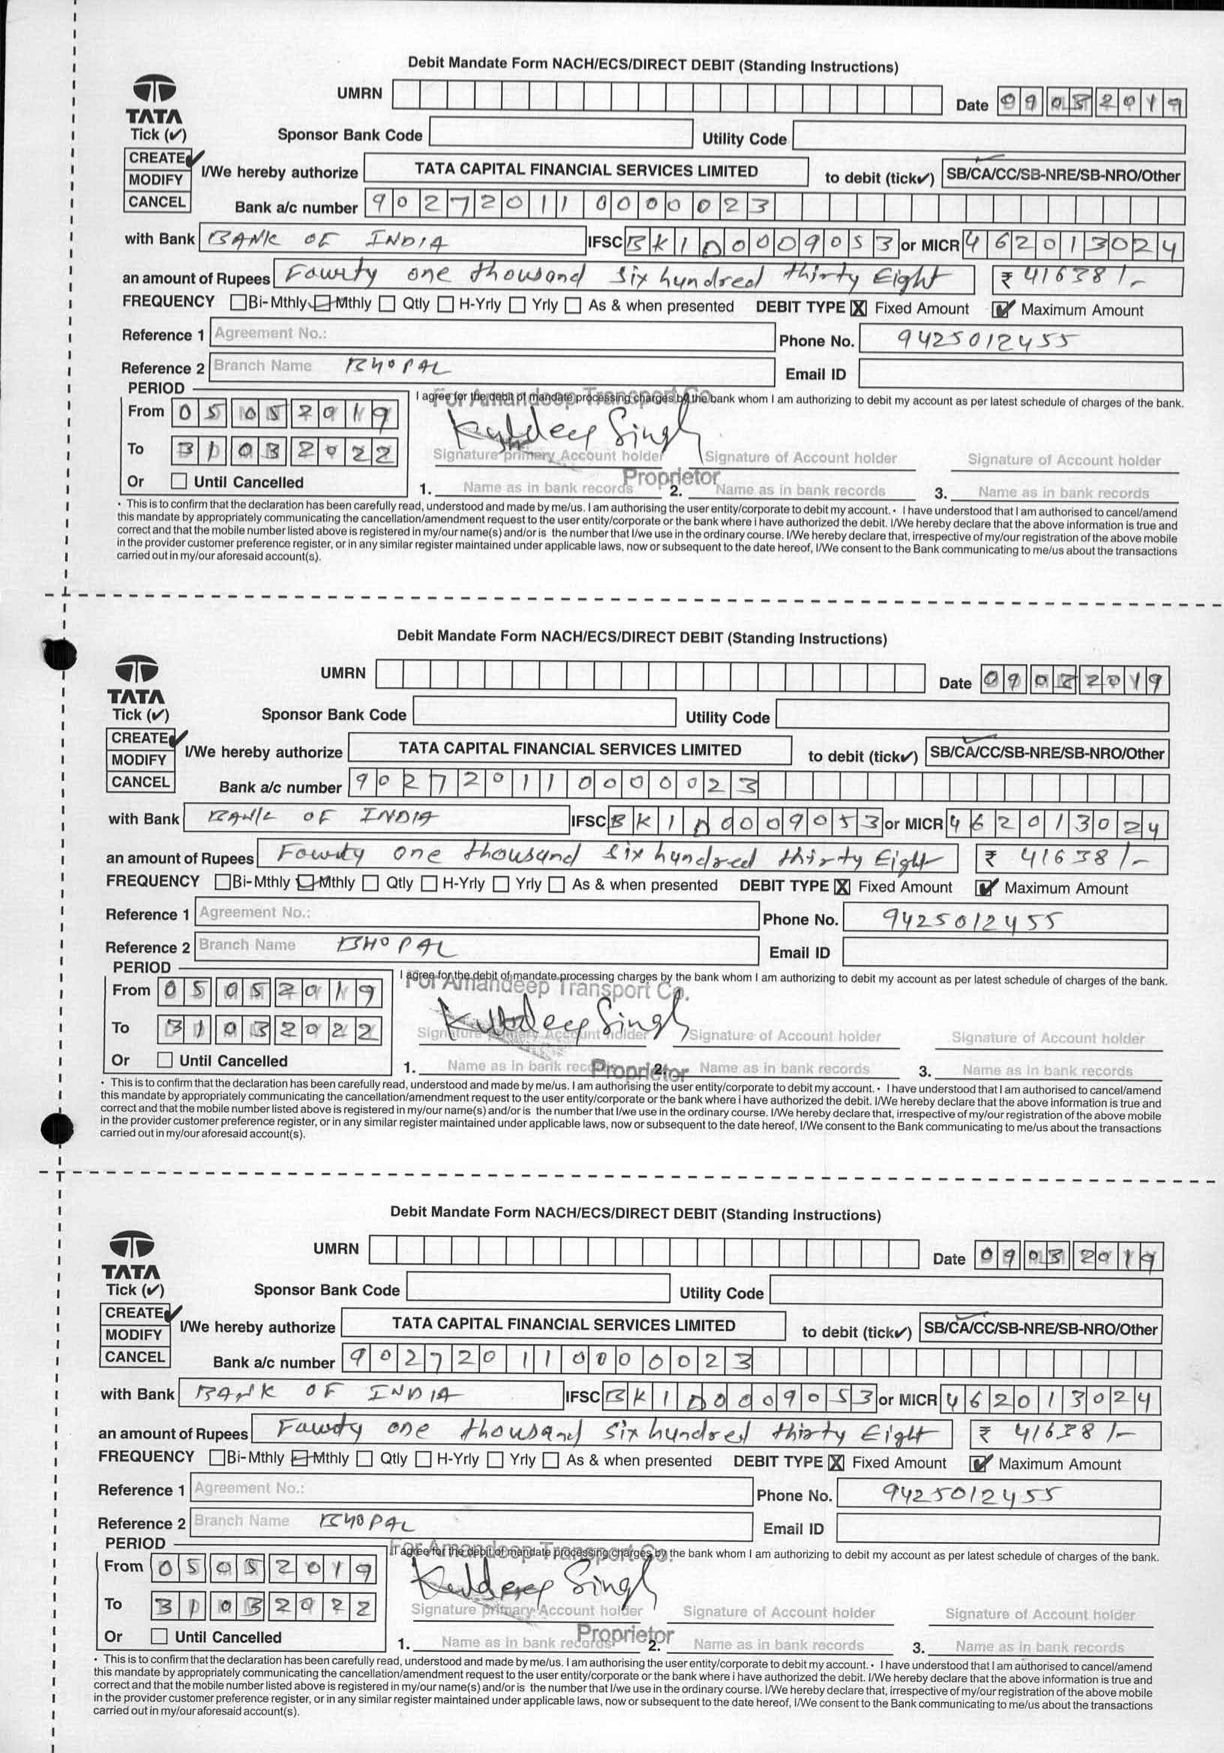 Debit Mandate Form NACH/ECS/DIRECT DEBIT (Standing Instructions)
UMRN Date 09032019
TATA
Tick (✔) Sponsor Bank Code Utility Code
CREATE ✔ I/We hereby authorize TATA CAPITAL FINANCIAL SERVICES LIMITED to debit (tick✔) SB/CA/CC/SB-NRE/SB-NRO/Other
MODIFY
CANCEL Bank a/c number 902720110000023
with Bank BANK OF INDIA IFSC BKID0009053 or MICR 462013024
an amount of Rupees Fourty one thousand six hundred thirty Eight ₹ 41638/-
FREQUENCY Bi-Mthly Mthly Qtly H-Yrly Yrly As & when presented DEBIT TYPE X Fixed Amount ✔ Maximum Amount
Reference 1 Agreement No.: Phone No. 9425012455
Reference 2 Branch Name BHOPAL Email ID
PERIOD
I agree for the debit of mandate processing charges by the bank whom I am authorizing to debit my account as per latest schedule of charges of the bank.
For Amandeep Transport Co.
From 05052019
Kuldeep Singh
To 31032022
Signature primary Account holder Signature of Account holder Signature of Account holder
Proprietor
Or Until Cancelled 1. Name as in bank records 2. Name as in bank records 3. Name as in bank records
• This is to confirm that the declaration has been carefully read, understood and made by me/us. I am authorising the user entity/corporate to debit my account. • I have understood that I am authorised to cancel/amend
this mandate by appropriately communicating the cancellation/amendment request to the user entity/corporate or the bank where i have authorized the debit. I/We hereby declare that the above information is true and
correct and that the mobile number listed above is registered in my/our name(s) and/or is the number that I/we use in the ordinary course. I/We hereby declare that, irrespective of my/our registration of the above mobile
in the provider customer preference register, or in any similar register maintained under applicable laws, now or subsequent to the date hereof, I/We consent to the Bank communicating to me/us about the transactions
carried out in my/our aforesaid account(s).
Debit Mandate Form NACH/ECS/DIRECT DEBIT (Standing Instructions)
UMRN Date 09032019
TATA
Tick (✔) Sponsor Bank Code Utility Code
CREATE ✔ I/We hereby authorize TATA CAPITAL FINANCIAL SERVICES LIMITED to debit (tick✔) SB/CA/CC/SB-NRE/SB-NRO/Other
MODIFY
CANCEL Bank a/c number 902720110000023
with Bank BANK OF INDIA IFSC BKID0009053 or MICR 462013024
an amount of Rupees Fourty one thousand six hundred thirty Eight ₹ 41638/-
FREQUENCY Bi-Mthly Mthly Qtly H-Yrly Yrly As & when presented DEBIT TYPE X Fixed Amount ✔ Maximum Amount
Reference 1 Agreement No.: Phone No. 9425012455
Reference 2 Branch Name BHOPAL Email ID
PERIOD
I agree for the debit of mandate processing charges by the bank whom I am authorizing to debit my account as per latest schedule of charges of the bank.
For Amandeep Transport Co.
From 05052019
Kuldeep Singh
To 31032022
Signature primary Account holder Signature of Account holder Signature of Account holder
Proprietor
Or Until Cancelled 1. Name as in bank records 2. Name as in bank records 3. Name as in bank records
• This is to confirm that the declaration has been carefully read, understood and made by me/us. I am authorising the user entity/corporate to debit my account. • I have understood that I am authorised to cancel/amend
this mandate by appropriately communicating the cancellation/amendment request to the user entity/corporate or the bank where i have authorized the debit. I/We hereby declare that the above information is true and
correct and that the mobile number listed above is registered in my/our name(s) and/or is the number that I/we use in the ordinary course. I/We hereby declare that, irrespective of my/our registration of the above mobile
in the provider customer preference register, or in any similar register maintained under applicable laws, now or subsequent to the date hereof, I/We consent to the Bank communicating to me/us about the transactions
carried out in my/our aforesaid account(s).
Debit Mandate Form NACH/ECS/DIRECT DEBIT (Standing Instructions)
UMRN Date 09032019
TATA
Tick (✔) Sponsor Bank Code Utility Code
CREATE ✔ I/We hereby authorize TATA CAPITAL FINANCIAL SERVICES LIMITED to debit (tick✔) SB/CA/CC/SB-NRE/SB-NRO/Other
MODIFY
CANCEL Bank a/c number 902720110000023
with Bank BANK OF INDIA IFSC BKID0009053 or MICR 462013024
an amount of Rupees Fourty one thousand six hundred thirty Eight ₹ 41638/-
FREQUENCY Bi-Mthly Mthly Qtly H-Yrly Yrly As & when presented DEBIT TYPE X Fixed Amount ✔ Maximum Amount
Reference 1 Agreement No.: Phone No. 9425012455
Reference 2 Branch Name BHOPAL Email ID
PERIOD
I agree for the debit of mandate processing charges by the bank whom I am authorizing to debit my account as per latest schedule of charges of the bank.
For Amandeep Transport Co.
From 05052019
Kuldeep Singh
To 31032022
Signature primary Account holder Signature of Account holder Signature of Account holder
Proprietor
Or Until Cancelled 1. Name as in bank records 2. Name as in bank records 3. Name as in bank records
• This is to confirm that the declaration has been carefully read, understood and made by me/us. I am authorising the user entity/corporate to debit my account. • I have understood that I am authorised to cancel/amend
this mandate by appropriately communicating the cancellation/amendment request to the user entity/corporate or the bank where i have authorized the debit. I/We hereby declare that the above information is true and
correct and that the mobile number listed above is registered in my/our name(s) and/or is the number that I/we use in the ordinary course. I/We hereby declare that, irrespective of my/our registration of the above mobile
in the provider customer preference register, or in any similar register maintained under applicable laws, now or subsequent to the date hereof, I/We consent to the Bank communicating to me/us about the transactions
carried out in my/our aforesaid account(s).